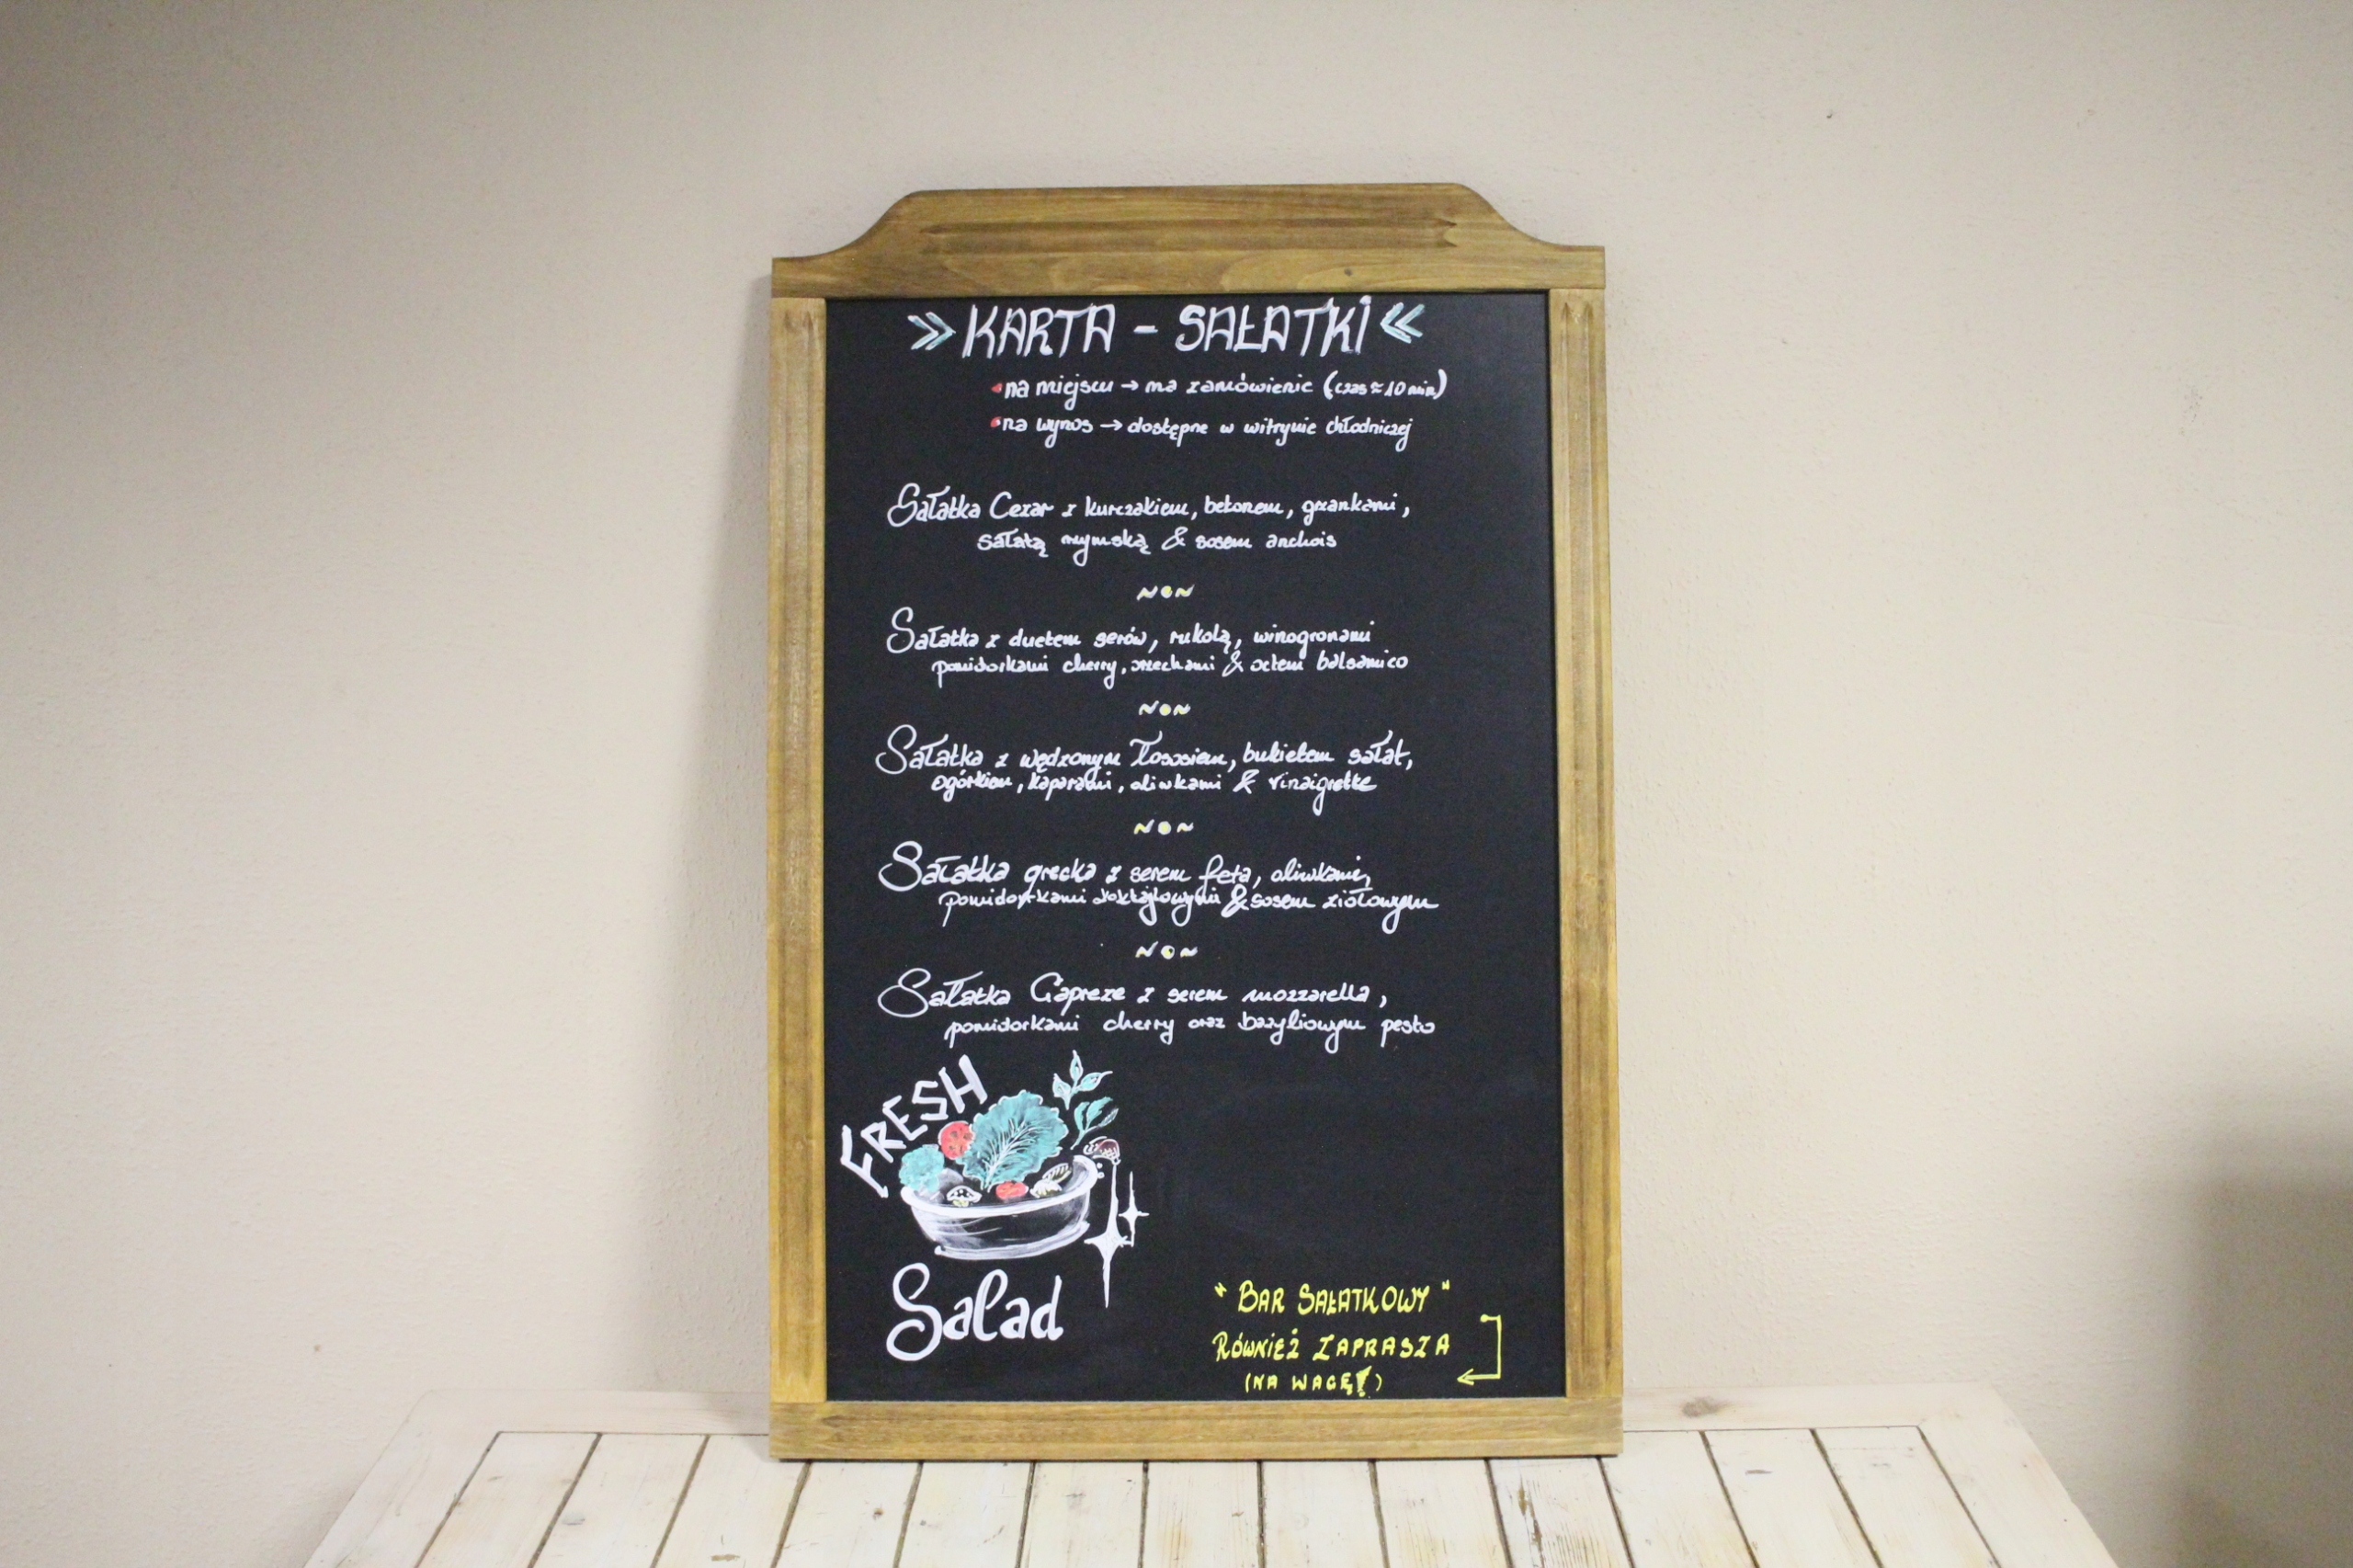 » KARTA - SAŁATKI «
na miejscu → na zamówienie (czas ≈ 10 min)
na wynos → dostępne w witrynie chłodniczej
Sałatka Cezar z kurczakiem, bekonem, grzankami,
sałatą rzymską & sosem anchois
Sałatka z duetem serów, rukolą, winogronami
pomidorkami cherry, orzechami & octem balsamico
Sałatka z wędzonym łososiem, bukietem sałat,
ogórkiem, kaparami, oliwkami & vinaigrette
Sałatka grecka z serem feta, oliwkami,
pomidorkami koktajlowymi & sosem ziołowym
Sałatka Capreze z serem mozzarella,
pomidorkami cherry oraz bazyliowym pesto
FRESH
Salad
"BAR SAŁATKOWY"
RÓWNIEŻ ZAPRASZA
(NA WAGĘ!)